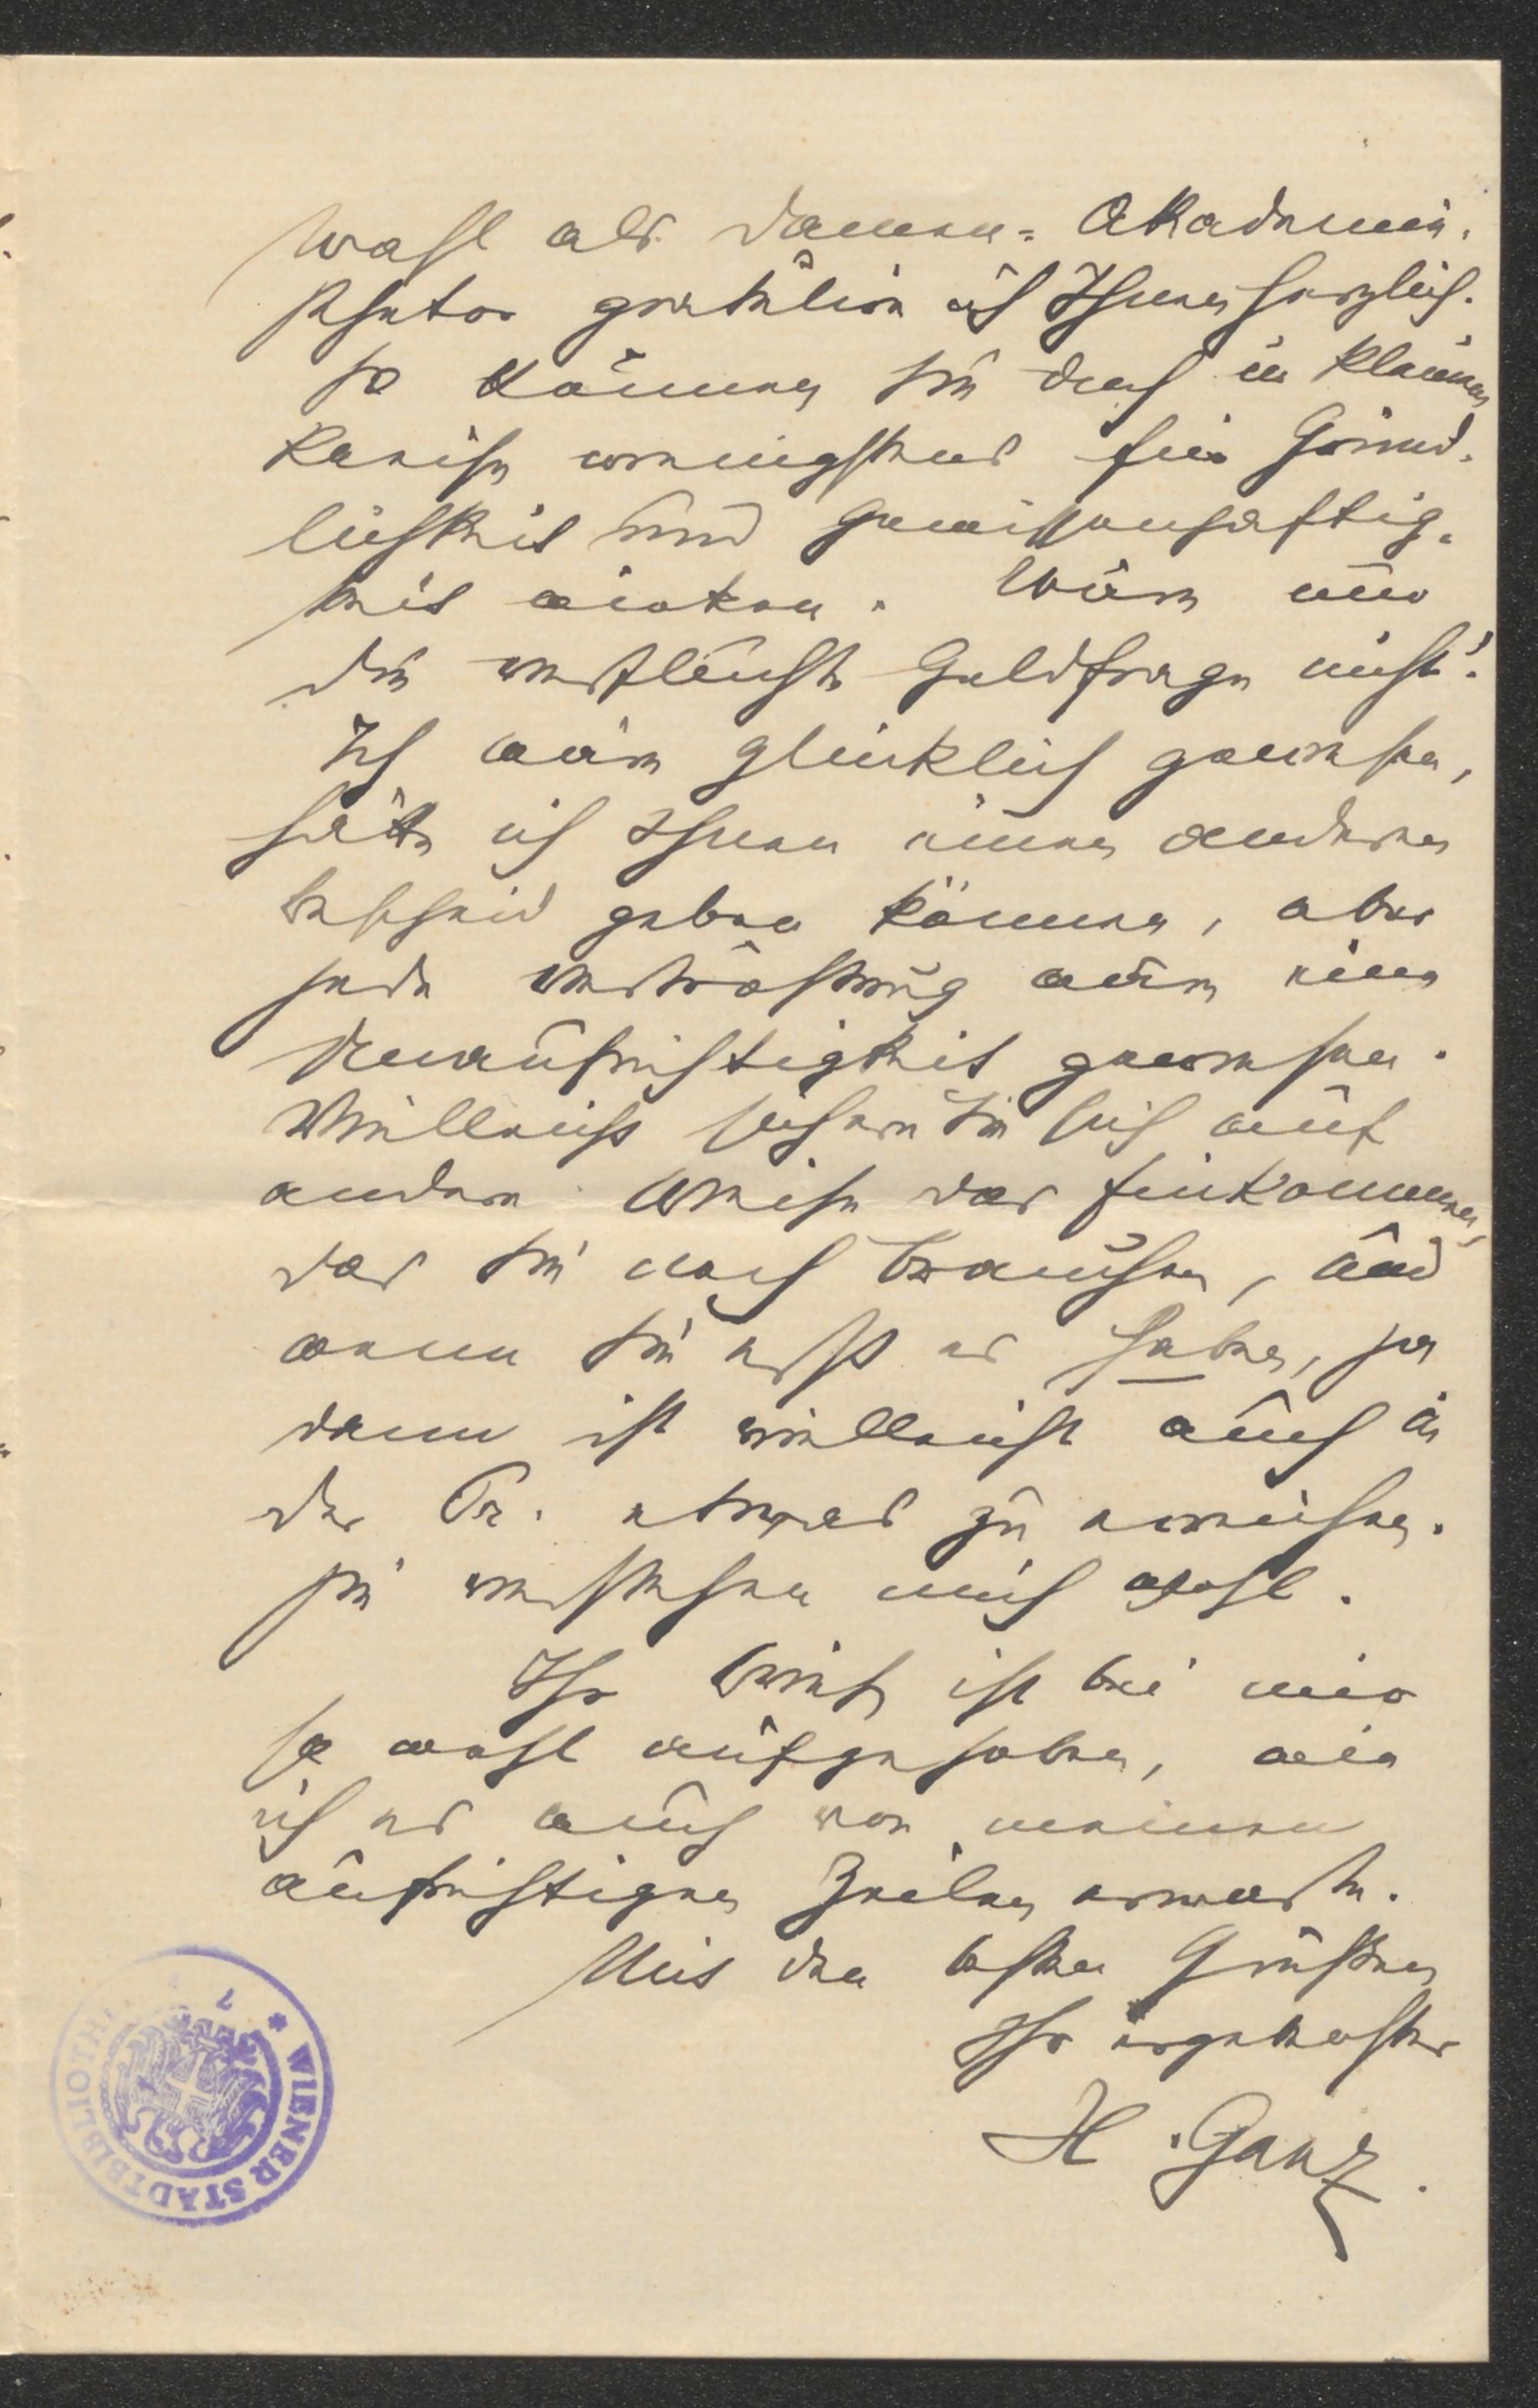 Wahl als Damen-Akademie-
rhetor gratulire ich Ihnen herzlich.
So können Sie doch im kleinen
Kreise wenigstens für Gründ-
lichkeit und Gewissenhaftig-
keit wirken. Wäre nur
die verfluchte Geldfrage nicht!
Ich wäre glücklich gewesen,
hätte ich Ihnen einen anderen
Bescheid geben können, aber
jede Vertröstung wäre eine
Unaufrichtigkeit gewesen.
Vielleicht sichern Sie sich auf
andere Weise das Einkommen,
das Sie noch brauchen, und
wenn Sie erst es haben, ja
dann ist vielleicht auch in
der Pr. etwas zu erreichen.
Sie verstehen mich wohl.
Ihr Brief ist bei mir
so wohl aufgehoben, wie
ich es auch von meinen
aufrichtigen Zeilen erwarte.
Mit den besten Grüßen
Ihr ergebenster
H. Ganz.
* WIENER STADTBIBLIOTHEK